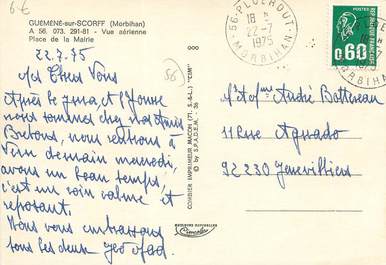 6-6
GUEMENÉ-sur-SCORFF (Morbihan)
A 56. 073. 291-81 - Vue aérienne
Place de la Mairie
22.7.75
chers Vous
Après le Jura, et l'Yonne
nous sommes chez nos amis
Bretons, nous rentrons à
demain mercredi,
avons un beau temps,
c'est un coin calme et
reposant.
Nous vous embrassons
tous les deux
56
COMBIER IMPRIMEUR MACON (71. S.-&-L.) "CIM"
© by S.P.A.D.E.M. 36
56-PLOERDUT
18 H
22-7
1975
MORBIHAN
0,60
MORBIHAN
Mr et Mme André Batteau
11 Rue Aguado
92230 Gennevilliers
COULEURS NATURELLES
Cimcolor